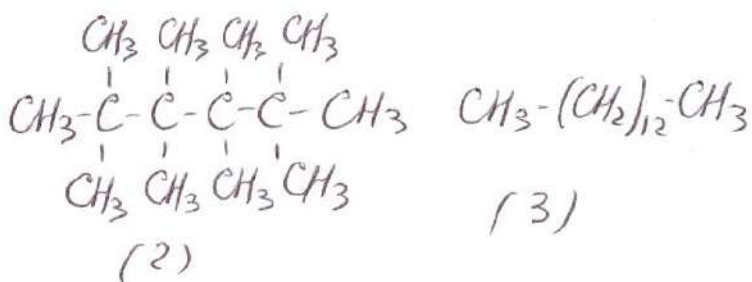 CH3 CH3 CH3 CH3
CH3-C-C-C-C-CH3 CH3-(CH2)12-CH3
CH3 CH3 CH3 CH3
(2) (3)